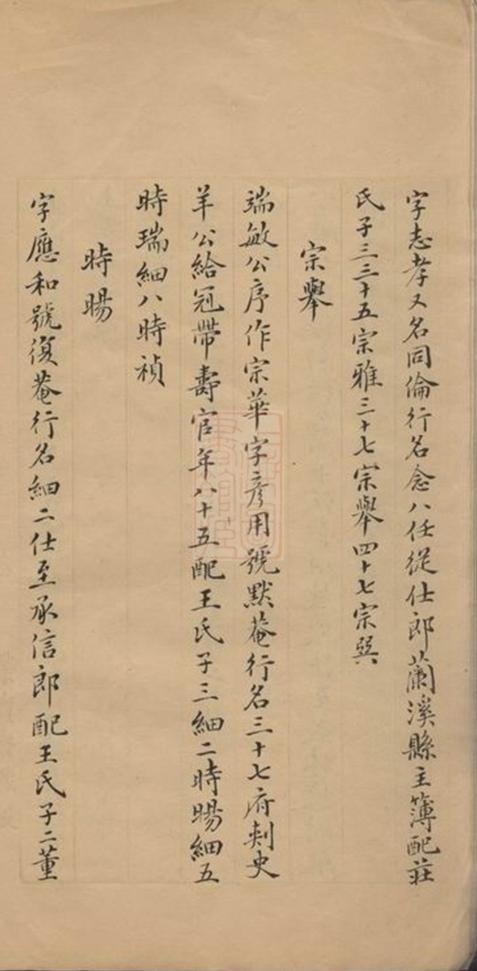 字志孝又名同倫行名念八任從仕郎蘭溪縣主簿配莊
氏子三三十五宗雅三十七宗舉四十七宗巽
宗舉
端敏公序作宗華字彥用號默菴行名三十七府刺史
羊公給冠帶壽官年八十五配王氏子三細二時暘細五
時瑞細八時禎
時暘
字應和號復菴行名細二仕至承信郎配王氏子二董